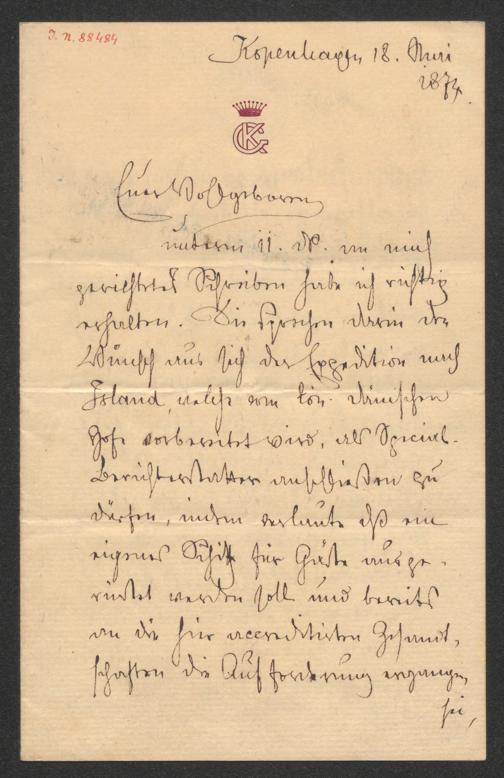 I. N. 88484
Kopenhagen 18. Mai
1874.
CK
Euer Wohlgeboren
unterm 11. d. M. an mich
gerichtetes Schreiben habe ich richtig
erhalten. Sie sprechen darin den
Wunsch aus sich der Expedition nach
Island, welche vom kön. dänischen
Hofe vorbereitet wird, als Special-
Berichterstatter anschließen zu
dürfen, indem verlaute dß ein
eigenes Schiff für Gäste ausge-
rüstet werden soll und bereits
an die hier accreditirten Gesandt-
schaften die Aufforderung ergangen
sei,